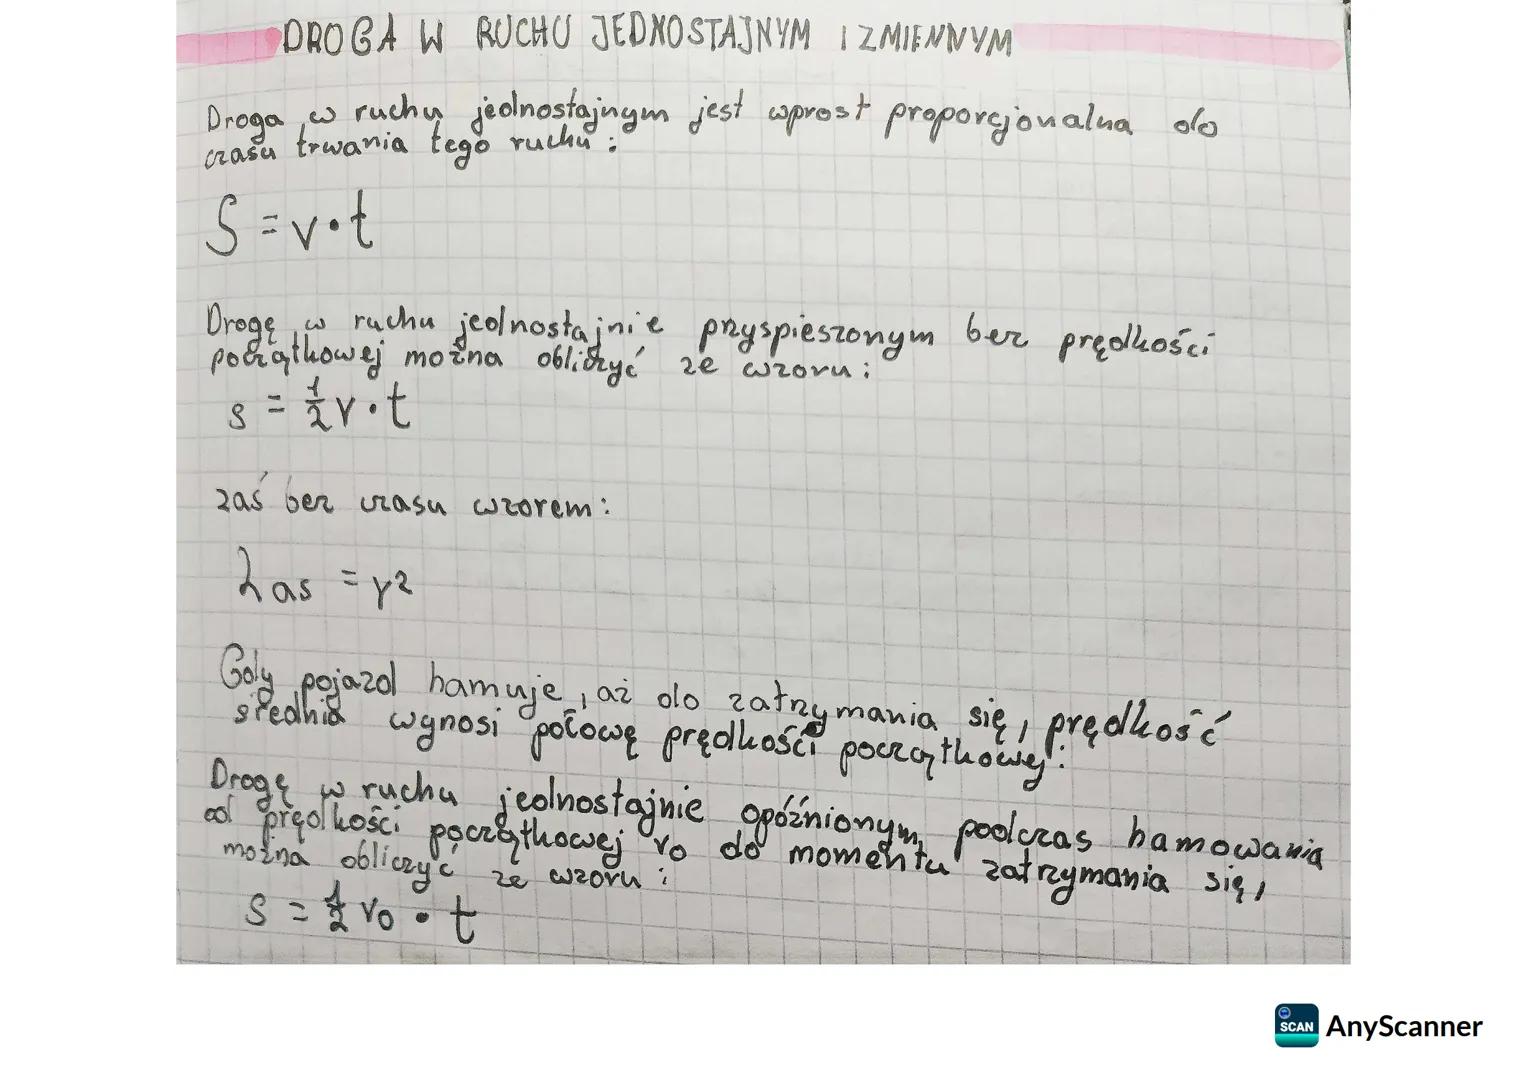 DROGA W RUCHU JEDNOSTAJNYM I ZMIENNYM
Droga w ruchu jednostajnym jest wprost proporcjonalna do
czasu trwania tego ruchu:
S = v • t
Drogę w ruchu jednostajnie przyspieszonym bez prędkości
początkowej można obliczyć ze wzoru:
s = 1/2 v • t
zaś bez czasu wzorem:
2as = v²
Gdy pojazd hamuje, aż do zatrzymania się, prędkość
średnia wynosi połowę prędkości początkowej:
Drogę w ruchu jednostajnie opóźnionym, podczas hamowania
od prędkości początkowej vo do momentu zatrzymania się,
można obliczyć ze wzoru:
s = 1/2 vo • t
SCAN AnyScanner